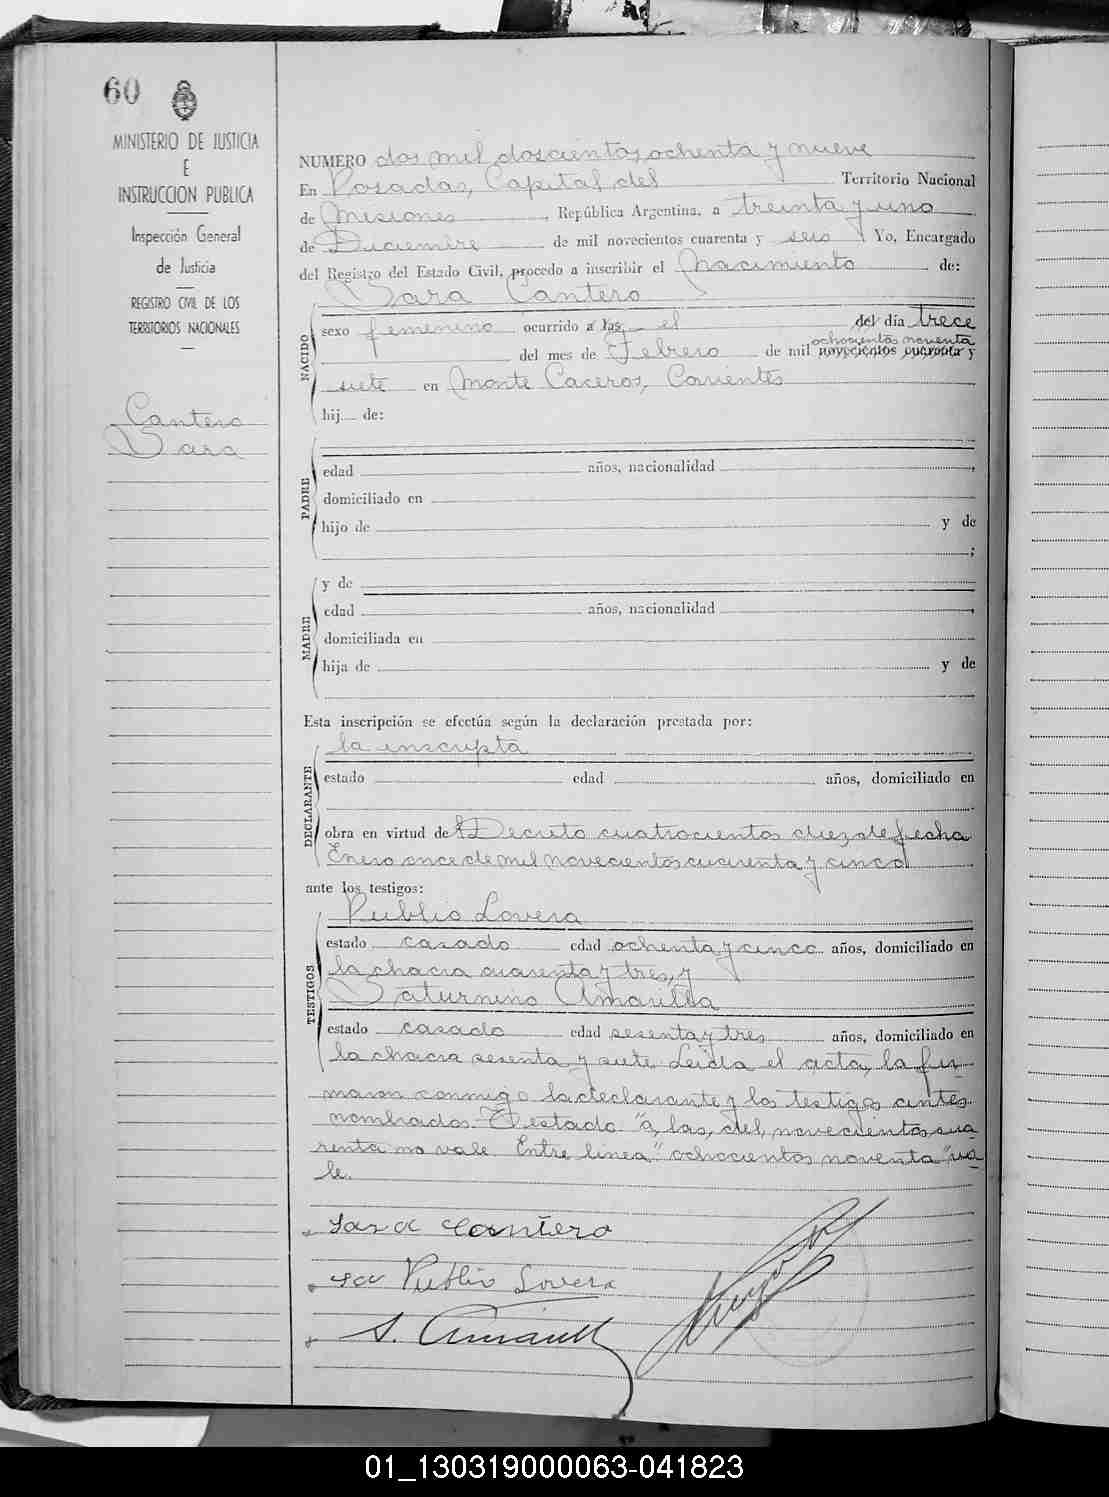 60
MINISTERIO DE JUSTICIA
E
INSTRUCCION PUBLICA
Inspección General
de Justicia
REGISTRO CIVIL DE LOS
TERRITORIOS NACIONALES
Cantero
Sara
NUMERO dos mil doscientos ochenta y nueve
En Posadas, Capital del Territorio Nacional
de Misiones, República Argentina, a treinta y uno
de Diciembre de mil novecientos cuarenta y seis Yo, Encargado
del Registro del Estado Civil, procedo a inscribir el Nacimiento de:
Sara Cantero
NACIDO
sexo femenino ocurrido a las el del día trece
ochocientos noventa
del mes de Febrero de mil novecientos cuarenta y
siete en Monte Caceros, Corrientes
hij de:
PADRE
edad años, nacionalidad
domiciliado en
hijo de y de
;
MADRE
y de
edad años, nacionalidad
domiciliada en
hija de y de
Esta inscripción se efectúa según la declaración prestada por:
la inscripta
DECLARANTE
estado edad años, domiciliado en
obra en virtud de Decreto cuatrocientos diez de fecha
Enero once de mil novecientos cuarenta y cinco
ante los testigos:
Publio Lovera
TESTIGOS
estado casado edad ochenta y cinco años, domiciliado en
la chacra cuarenta y tres, y
Saturnino Amarilla
estado casado edad sesenta y tres años, domiciliado en
la chacra sesenta y siete. Leida el acta, la fir-
maron conmigo la declarante y los testigos antes
nombrados. Testado "a, las, del, novecientos cua
renta no vale. Entre linea "ochocientos noventa" va-
le.
Sara Cantero
Publio Lovera
S. Amarill
01_130319000063-041823